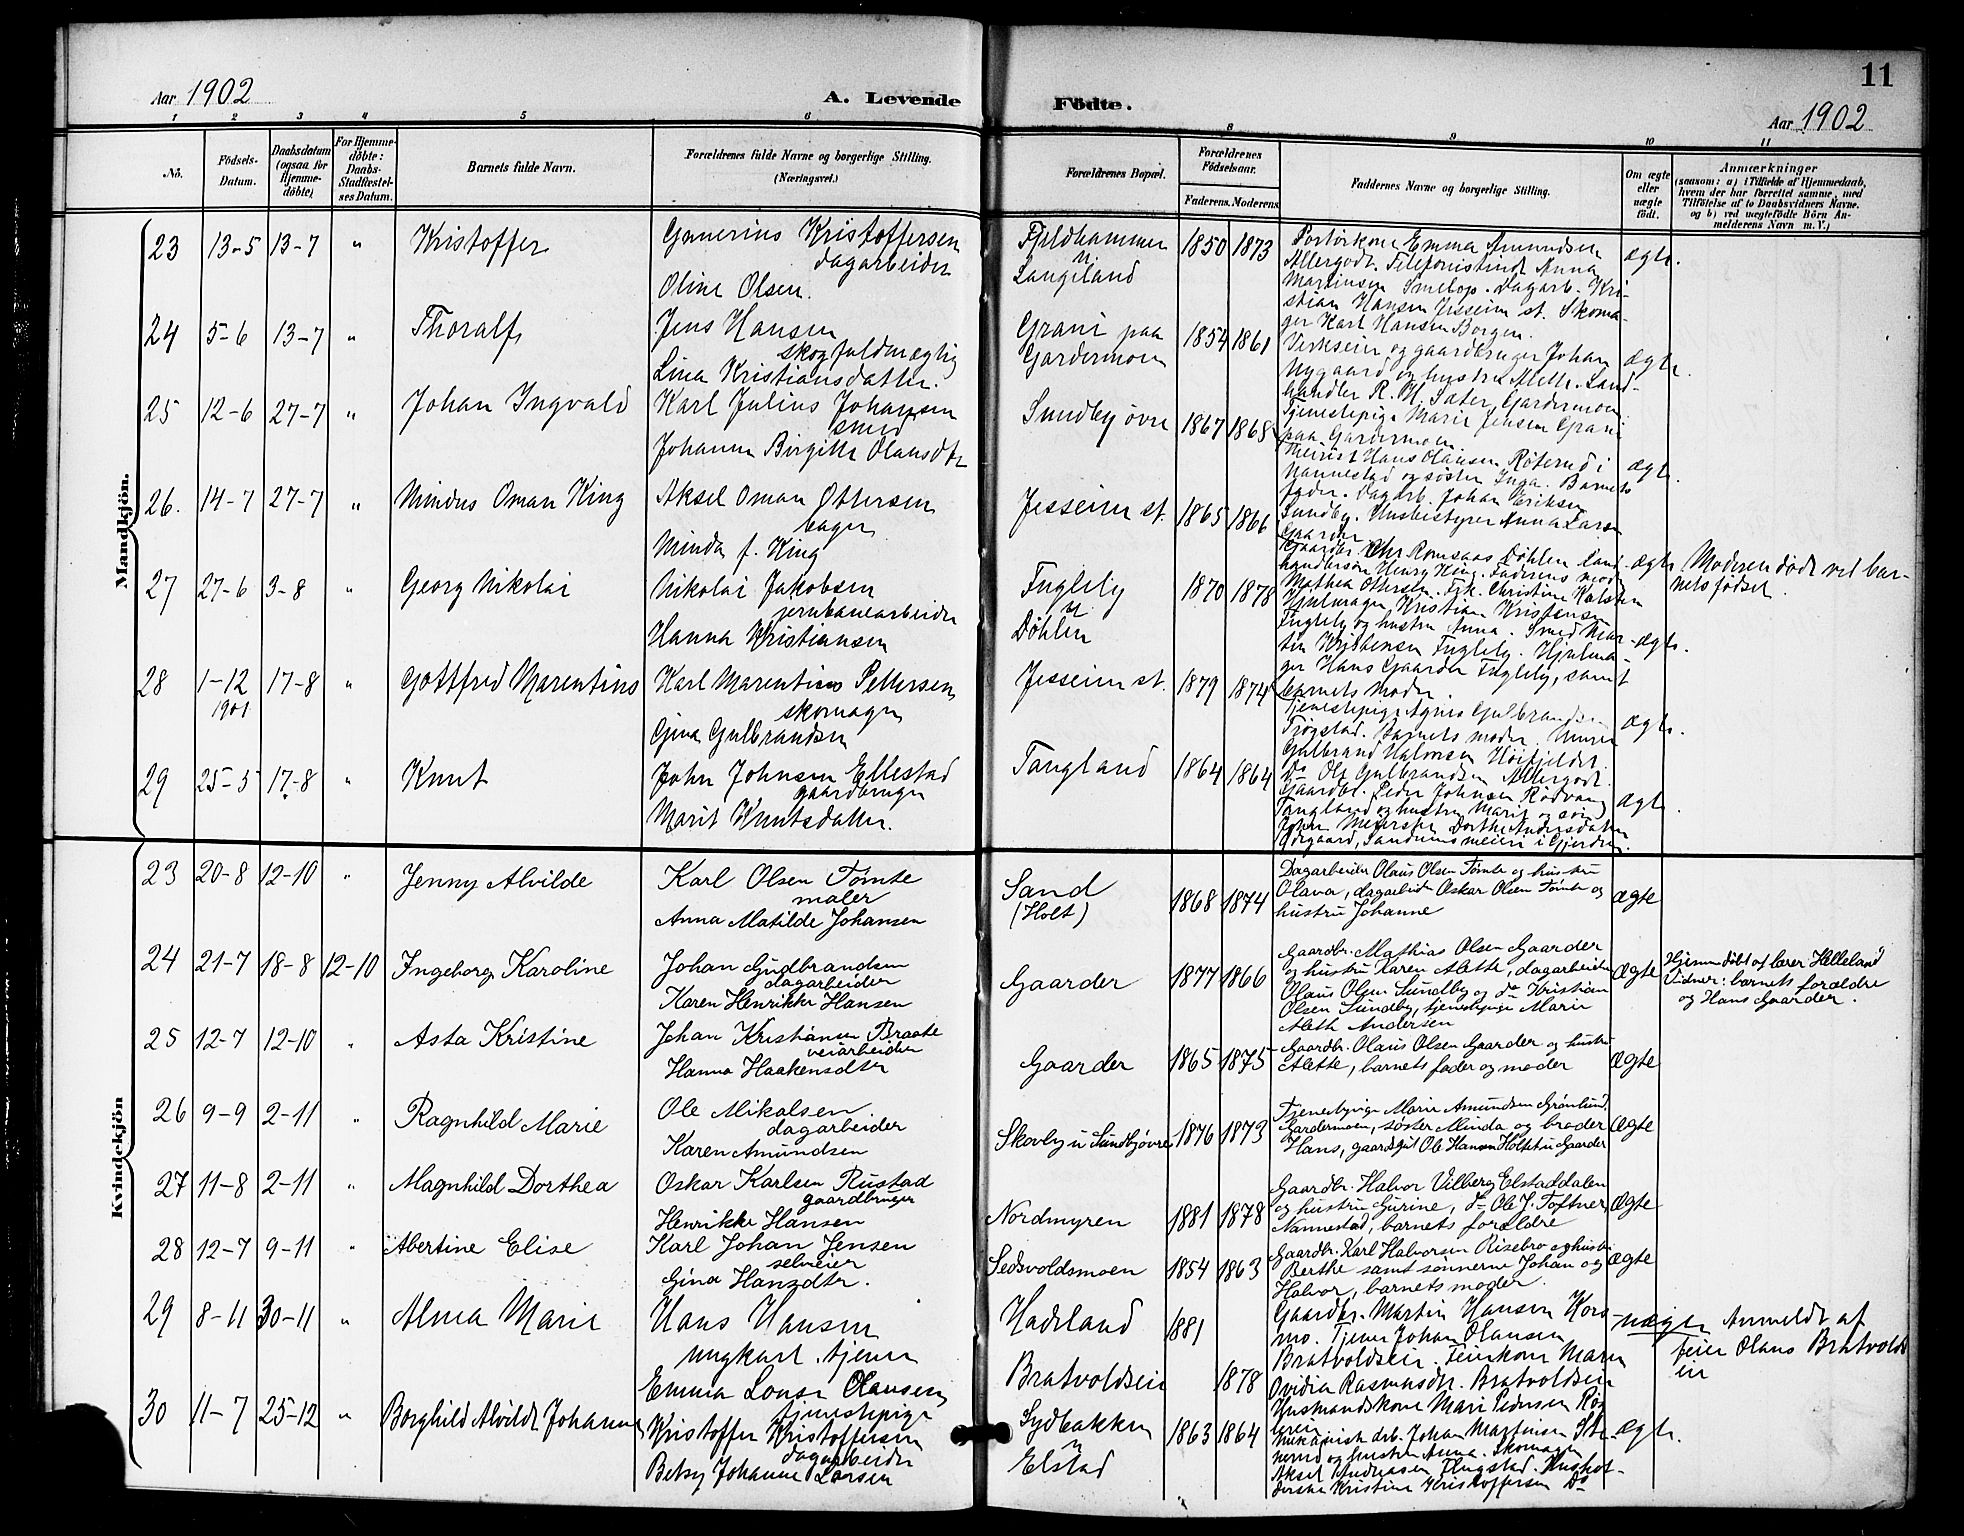 11
Aar 1902
A. Levende Födte.
Aar 1902
1 2 3 4 5 6 8 9 10 11
No.
Födsels-Datum.
Daabsdatum (ogsaa for Hjemme-döbte)
For Hjemme-döbte: Daabs-Stadfæstel-ses Datum.
Barnets fulde Navn.
Forældrenes fulde Navne og borgerlige Stilling. (Næringsvei.)
Forældrenes Bopæl.
Forældrenes Födselsaar.
Faderens. Moderens.
Faddernes Navne og borgerlige Stilling.
Om ægte eller uægte födt.
Anmærkninger
(saasom: a) i Tilfælde af Hjemmedaab, hvem der har forrettet samme, med Tilföielse af to Daabsvidners Navne. og b) ved uægtefödte Börn An-melderens Navn m. V.)
Mandkjön.
23 13-5 13-7 " Kristoffer
Kristoffersen
dagarbeider
Oline Olsen.
Fjeldhammer
u.
Langeland
1850 1873
Emma Amundsen
Allergodt. Telefonistinde Anna
Martinsen Dagarb. Kri-
stian Hansen Jesseim st. Skoma-
ger Karl Hansen Borgen.
ægte.
24 5-6 13-7 " Thoralf
Jens Hansen
skogfuldmægtig
Lina Kristiansdatter.
Grani paa
Gardermoen
1854 1861
Verkseier og gaardbruger Johan
Nygaard og hustru Alette. Land-
handler R. N. Sæter, Gardermoen.
Tjenestepige Marie Jensen Grani
paa Gardermoen
ægte.
25 12-6 27-7 " Johan Ingvald
Karl Julius Johansen
smed
Johanne Birgitte Olausdtr
Sundby övre
1867 1868
Hans Olausen Röterud i
Nannestad og söster Inga. Barnets
fader. Dagarb. Johan Eriksen
Sundby. Anna Larsen
Gaarder
ægte.
26. 14-7 27-7 " Mindus Oman King
Aksel Oman Ottersen
bager
Minda f. King
Jesseim st.
1865 1866
Gaardbr. Chr Romsaas Döhlen land-
handlersön Henry King. Faderens moder
Mathea Ottersen. Frk. Christine Kolstad
ægte.
Moderen döde ved bar-
nets födsel.
27 27-6 3-8 " Georg Nikolai
Nikolai Jakobsen
jernbanearbeider
Hanna Kristiansen
Fuglely
u.
Döhlen
1870 1878
Hjulmager Kristian Kristensen
Fuglely og hustru Anna. Smed Mar-
tin Kristensen Fuglely. Hjulma-
ger Hans Gaarder Fuglely, samt
barnets moder.
ægte.
28 1-12 1901 17-8 " Gottfred Marentius
Karl Marentius Pettersen
skomager
Gina Gulbrandsen
Jesseim st.
1879 1874
Tjenestepige Agnes Gulbrandsen
Trögstad. Barnets moder.
Gulbrand Halvorsen
Do Ole Gulbrandsen Allergodt.
ægte.
29 25-5 17-8 " Knut
John Johnsen Ellestad
gaardbruger
Marit Knutsdatter.
Tangland
1864 1864
Gaardbr. Peder Johnsen Rödvang
Tangland og hustru Marit og sön
John Meierske Dorthe Andersdatter
ægte.
Kvindekjön
23 20-8 12-10 " Jenny Alvilde
Karl Olsen Tömte
maler
Anna Matilde Johansen
Sand
(Holt)
1868 1874
Dagarbeider Olaus Olsen Tömte og hustru
Olava, dagarbeider Oskar Olsen Tömte og
hustru Johanne
Ægte
24 21-7 18-8 12-10 Ingeborg Karoline
Johan Gudbrandsen
dagarbeider
Karen Henrikke Hansen
Gaarder
1877 1866
Gaardbr. Mathias Olsen Gaarder
og hustru Karen Alette, dagarbeider
Olaus Olsen Sundby og do Kristian
Olsen Sundby, tjenestepige Marie
Aleth Andersen
Ægte
Hjemmedöbt af lærer Helleland
Vidner: barnets forældre
og Hans Gaarder.
25 12-7 12-10 " Asta Kristine
Johan Kristiansen Braate
veiarbeider
Hanna Haakensdtr
Gaarder
1865 1875
Gaardbr. Olaus Olsen Gaarder og hustru
Alette, barnets fader og moder
Ægte
26 9-9 2-11 " Ragnhild Marie
Ole Mikalsen
dagarbeider
Karen Amundsen
Skovby u Sundbyövre
1876 1873
Tjenestepige Marie Amundsen Grönlund,
Gardermoen, söster Minda og broder
Hans, gaardsgut Ole Hansen Holtet u Gaarder
Ægte
27 11-8 2-11 " Magnhild Dorthea
Oskar Karlsen Rustad
gaardbruger
Henrikke Hansen
Nordmyren
1881 1878
Gaardbr. Halvor Vilberg Elstaddalen
og hustru Gurine, do Ole J. Toftner
Nannestad, barnets forældre
Ægte
28 12-7 9-11 " Abertine Elise
Karl Johan Jensen
selveier
Gina Hansdtr.
Sedsvoldsmoen
1854 1863
Gaardbr. Karl Halvorsen Risebro og hustru
Berthe samt sönnerne Johan og
Halvor, barnets moder.
Ægte
29 8-11 30-11 " Alma Marie
Hans Hansen
ungkarl, tjener
Emma Louise Olausen
tjenestepige
Hadeland
Bratvoldseie
1881
1878
Gaardbr. Martin Hansen Kors
mo. Tjener Johan Olausen
Bratvoldseie. Feierkone Maren
Ovidia Rasmusdtr. Bratvoldseie
Husmandskone Mari Pedersen
uægte
Anmeldt af
feier Olaus Bratvolds
eie
30 11-7 25-12 " Borghild Alvilde Johanne
Kristoffer Kristoffersen
dagarbeider
Betsy Johanne Larsen
Sydbakken
u
Elstad
1863 1864
Mekanisk arb. Johan Martinsen
og hustru Anna. Skomager
Aksel Andreasen Flugstad. Hushol-
derske Kristine Kristoffersen Do
ægte.